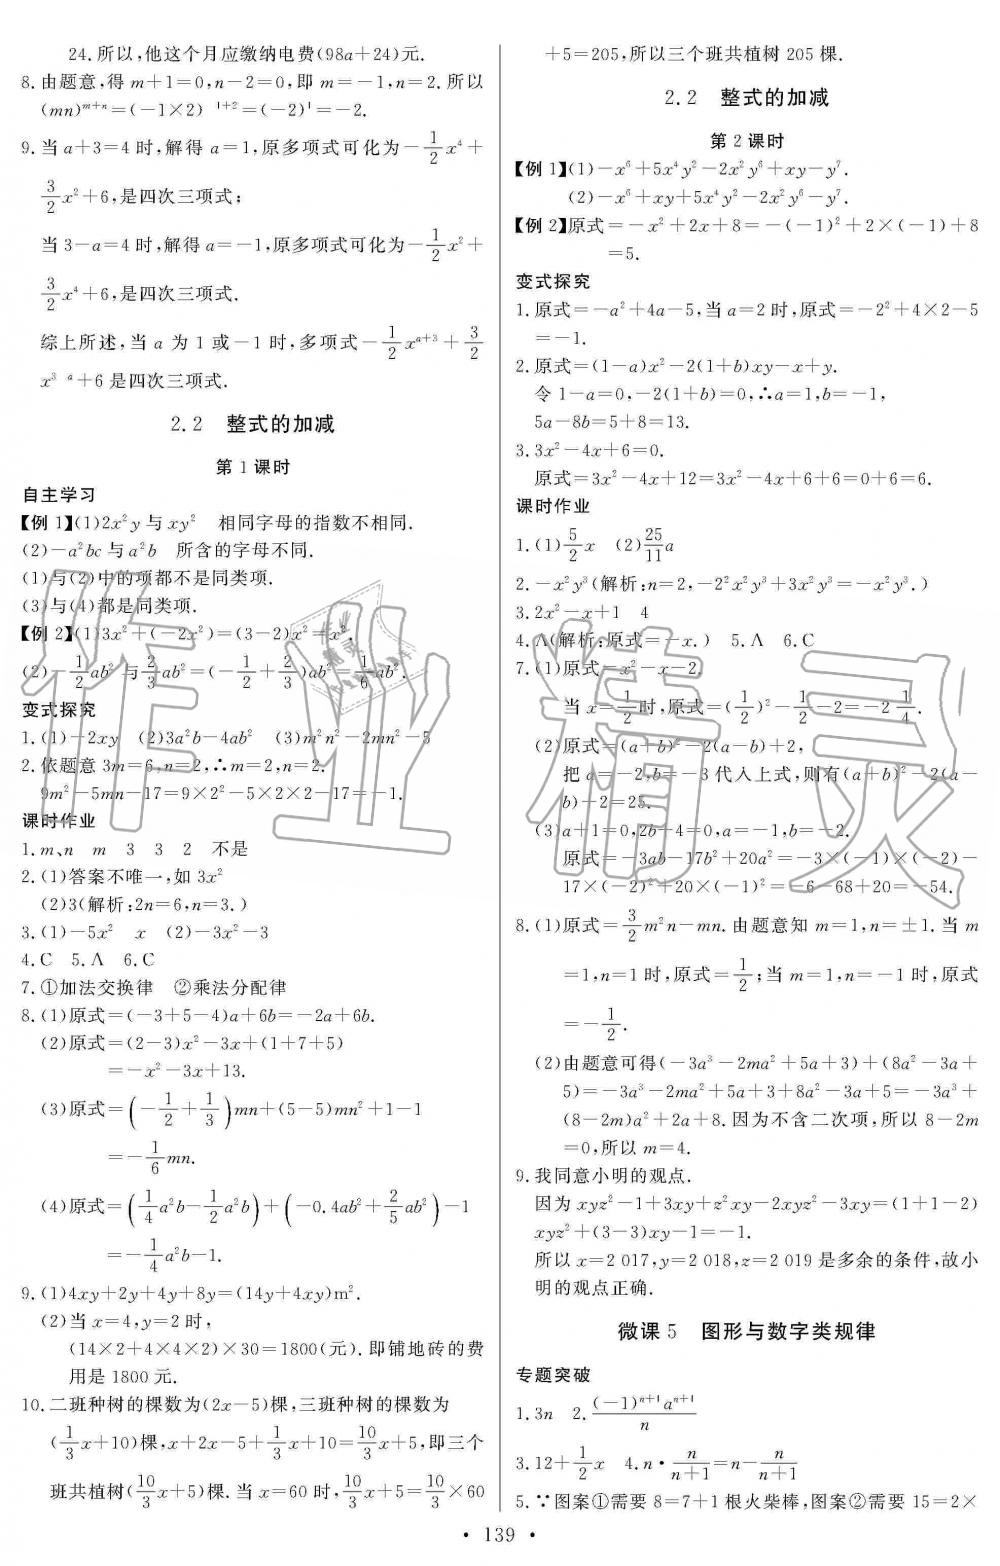 24.所以,他这个月应缴纳电费(98a+24)元.
8.由题意,得 m+1=0,n-2=0,即 m=-1,n=2.所以
(mn)^{m+n}=(-1×2)^{1+2}=(-2)^1=-2.
9.当 a+3=4 时,解得 a=1,原多项式可化为 -1/2 x^4+
3/2 x^2+6,是四次三项式;
当 3-a=4 时,解得 a=-1,原多项式可化为 -1/2 x^2+
3/2 x^4+6,是四次三项式.
综上所述,当 a 为 1 或-1 时,多项式 -1/2 x^{a+3}+3/2
x^{3 a}+6 是四次三项式.
2.2 整式的加减
第 1 课时
自主学习
【例 1】(1)2x^2y 与 xy^2 相同字母的指数不相同.
(2)-a^2bc 与 a^2b 所含的字母不同.
(1)与(2)中的项都不是同类项.
(3)与(4)都是同类项.
【例 2】(1)3x^2+(-2x^2)=(3-2)x^2=x^2.
(2)-1/2 ab^2 与 2/3 ab^2=(-1/2+2/3)ab^2=1/6 ab^2.
变式探究
1.(1)-2xy (2)3a^2b-4ab^2 (3)m^2n^2-2mn^2-5
2.依题意 3m=6,n=2,∴m=2,n=2.
9m^2-5mn-17=9×2^2-5×2×2-17=-1.
课时作业
1.m、n m 3 3 2 不是
2.(1)答案不唯一,如 3x^2
(2)3(解析:2n=6,n=3.)
3.(1)-5x^2 x (2)-3x^2-3
4.C 5.A 6.C
7.①加法交换律 ②乘法分配律
8.(1)原式=(-3+5-4)a+6b=-2a+6b.
(2)原式=(2-3)x^2-3x+(1+7+5)
=-x^2-3x+13.
(3)原式=(-1/2+1/3)mn+(5-5)mn^2+1-1
=-1/6 mn.
(4)原式=(1/4 a^2b-1/2 a^2b)+(-0.4ab^2+2/5 ab^2)-1
=-1/4 a^2b-1.
9.(1)4xy+2y+4y+8y=(14y+4xy)m^2.
(2)当 x=4,y=2 时,
(14×2+4×4×2)×30=1800(元).即铺地砖的费
用是 1800 元.
10.二班种树的棵数为(2x-5)棵,三班种树的棵数为
(1/3 x+10)棵,x+2x-5+1/3 x+10=10/3 x+5,即三个
班共植树(10/3 x+5)棵.当 x=60 时,10/3 x+5=10/3×60
+5=205,所以三个班共植树 205 棵.
2.2 整式的加减
第 2 课时
【例 1】(1)-x^6+5x^4y^2-2x^2y^6+xy-y^7.
(2)-x^6+xy+5x^4y^2-2x^2y^6-y^7.
【例 2】原式=-x^2+2x+8=-(-1)^2+2×(-1)+8
=5.
变式探究
1.原式=-a^2+4a-5,当 a=2 时,原式=-2^2+4×2-5
=-1.
2.原式=(1-a)x^2-2(1+b)xy-x+y.
令 1-a=0,-2(1+b)=0,∴a=1,b=-1,
5a-8b=5+8=13.
3.3x^2-4x+6=0.
原式=3x^2-4x+12=3x^2-4x+6+6=0+6=6.
课时作业
1.(1)5/2 x (2)25/11 a
2.-x^2y^3(解析:n=2,-2^2x^2y^3+3x^2y^3=-x^2y^3.)
3.2x^2-x+1 4
4.A(解析:原式=-x.) 5.A 6.C
7.(1)原式=x^2-x-2.
当 x=1/2 时,原式=(1/2)^2-1/2-2=-2 1/4.
(2)原式=(a+b)^2-2(a-b)+2,
把 a=-2,b=-3 代入上式,则有(a+b)^2-2(a-
b)-2=25.
(3)a+1=0,2b+4=0,a=-1,b=-2.
原式=-3ab-17b^2+20a^2=-3×(-1)×(-2)-
17×(-2)^2+20×(-1)^2=-6-68+20=-54.
8.(1)原式=3/2 m^2n-mn.由题意知 m=1,n=±1.当 m
=1,n=1 时,原式=1/2;当 m=1,n=-1 时,原式
=-1/2.
(2)由题意可得(-3a^3-2ma^2+5a+3)+(8a^2-3a+
5)=-3a^3-2ma^2+5a+3+8a^2-3a+5=-3a^3+
(8-2m)a^2+2a+8.因为不含二次项,所以 8-2m
=0,所以 m=4.
9.我同意小明的观点.
因为 xyz^2-1+3xy+z^2xy-2xyz^2-3xy=(1+1-2)
xyz^2+(3-3)xy-1=-1.
所以 x=2 017,y=2 018,z=2 019 是多余的条件,故小
明的观点正确.
微课 5 图形与数字类规律
专题突破
1.3n 2.(-1)^{n+1}a^{n+1}/n
3.12+1/2 x 4.n·n/(n+1)=n-n/(n+1)
5.∵图案①需要 8=7+1 根火柴棒,图案②需要 15=2×
• 139 •
作业精灵